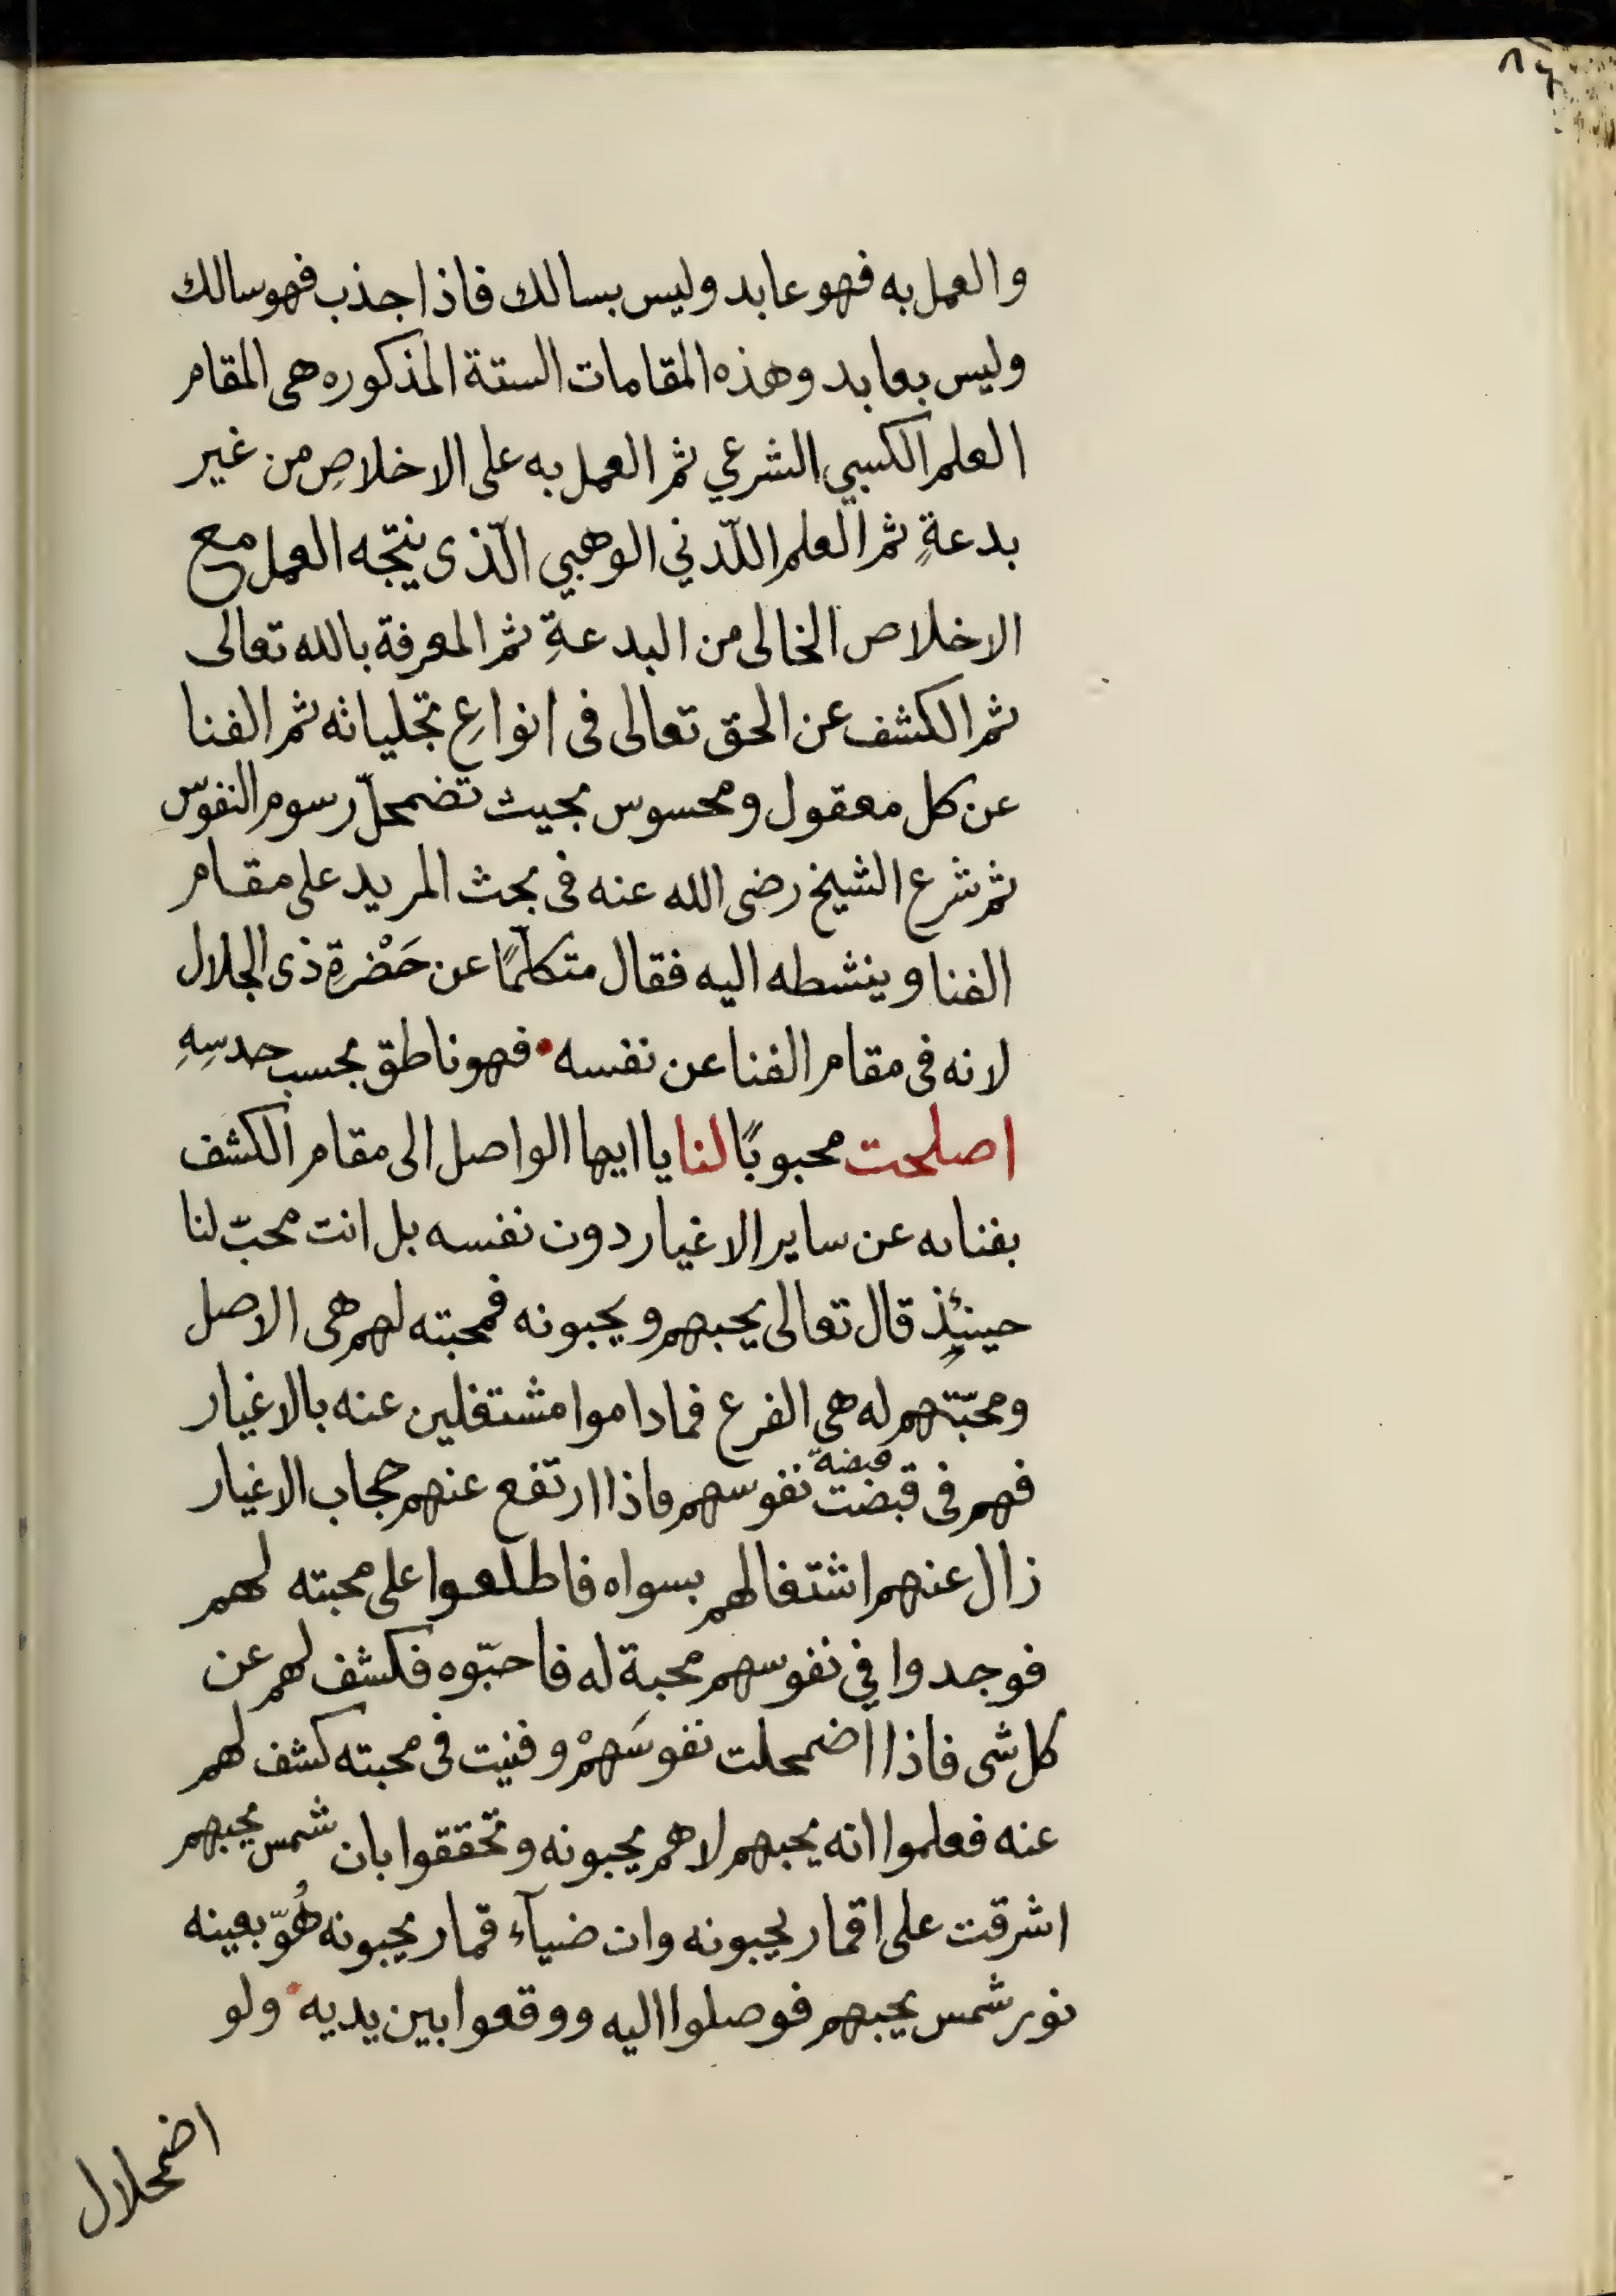 والعمل به فهو عابد وليس بسالك فاذا جذب فهو سالك
وليس بعابد وهذه المقامات الستة المذكوره هى المقام
العلم الكسبي الشرعي ثم العمل به على الاخلاصِ من غير
بدعةٍ ثم العلم اللّدني الوهبي الّذى ينتجه العمل مع
الاخلاص الخالى من البدعةِ ثم المعرفة بالله تعالى
ثم الكشف عن الحق تعالى فى انواعِ تجلياته ثم الفنا
عن كل معقول ومحسوس بحيث تضمحلّ رسوم النفوس
ثم شرع الشيخ رضى الله عنه فى بحث المريد على مقام
الفنا وينشطه اليه فقال متكلّمًا عن حَضْرةِ ذى الجلال
لانه فى مقام الفنا عن نفسه فهو ناطق بحسب حدسِهِ
اصلحت محبوبًا لنا يا ايها الواصل الى مقام الكشف
بفنائه عن ساير الاغيار دون نفسه بل انت محبّ لنا
حينئذٍ قال تعالى يحبهم ويحبونه فمحبته لهم هى الاصل
ومحبّتهم له هى الفرع فمادا موا مشتغلين عنه بالاغيار
فهم فى قبضت قبضة نفوسهم فاذا ارتفع عنهم حجاب الاغيار
زال عنهم اشتغالهم بسواه فاطلعوا على محبته لهم
فوجدوا في نفوسهم محبة له فاحبّوه فكشف لهم عن
كل شى فاذا اضمحلت نفوسَهمْ وفنيت فى محبته كشف لهم
عنه فعلموا انه يحبهم لا هم يحبونه وتحققوا بان شمس يحبهم
اشرقت على اقمار يحبونه وان ضيآء قمار يحبونه هُوّ بعينه
نور شمس يحبهم فوصلوا اليه ووقعوا بين يديه ولو
اضمحلال